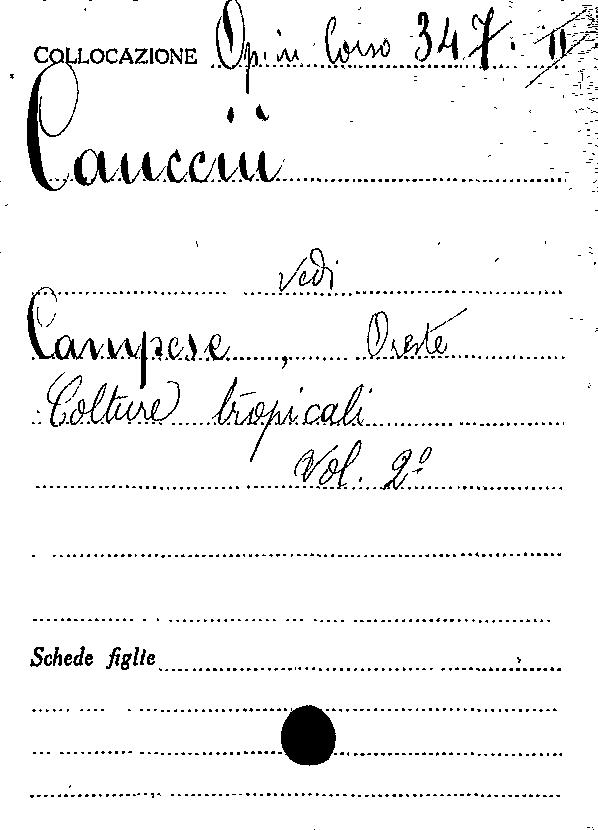 COLLOCAZIONE Op. in Corso 347. II
Caucciù
vedi
Campese, Oreste
Colture tropicali
Vol. 2º
Schede figlie